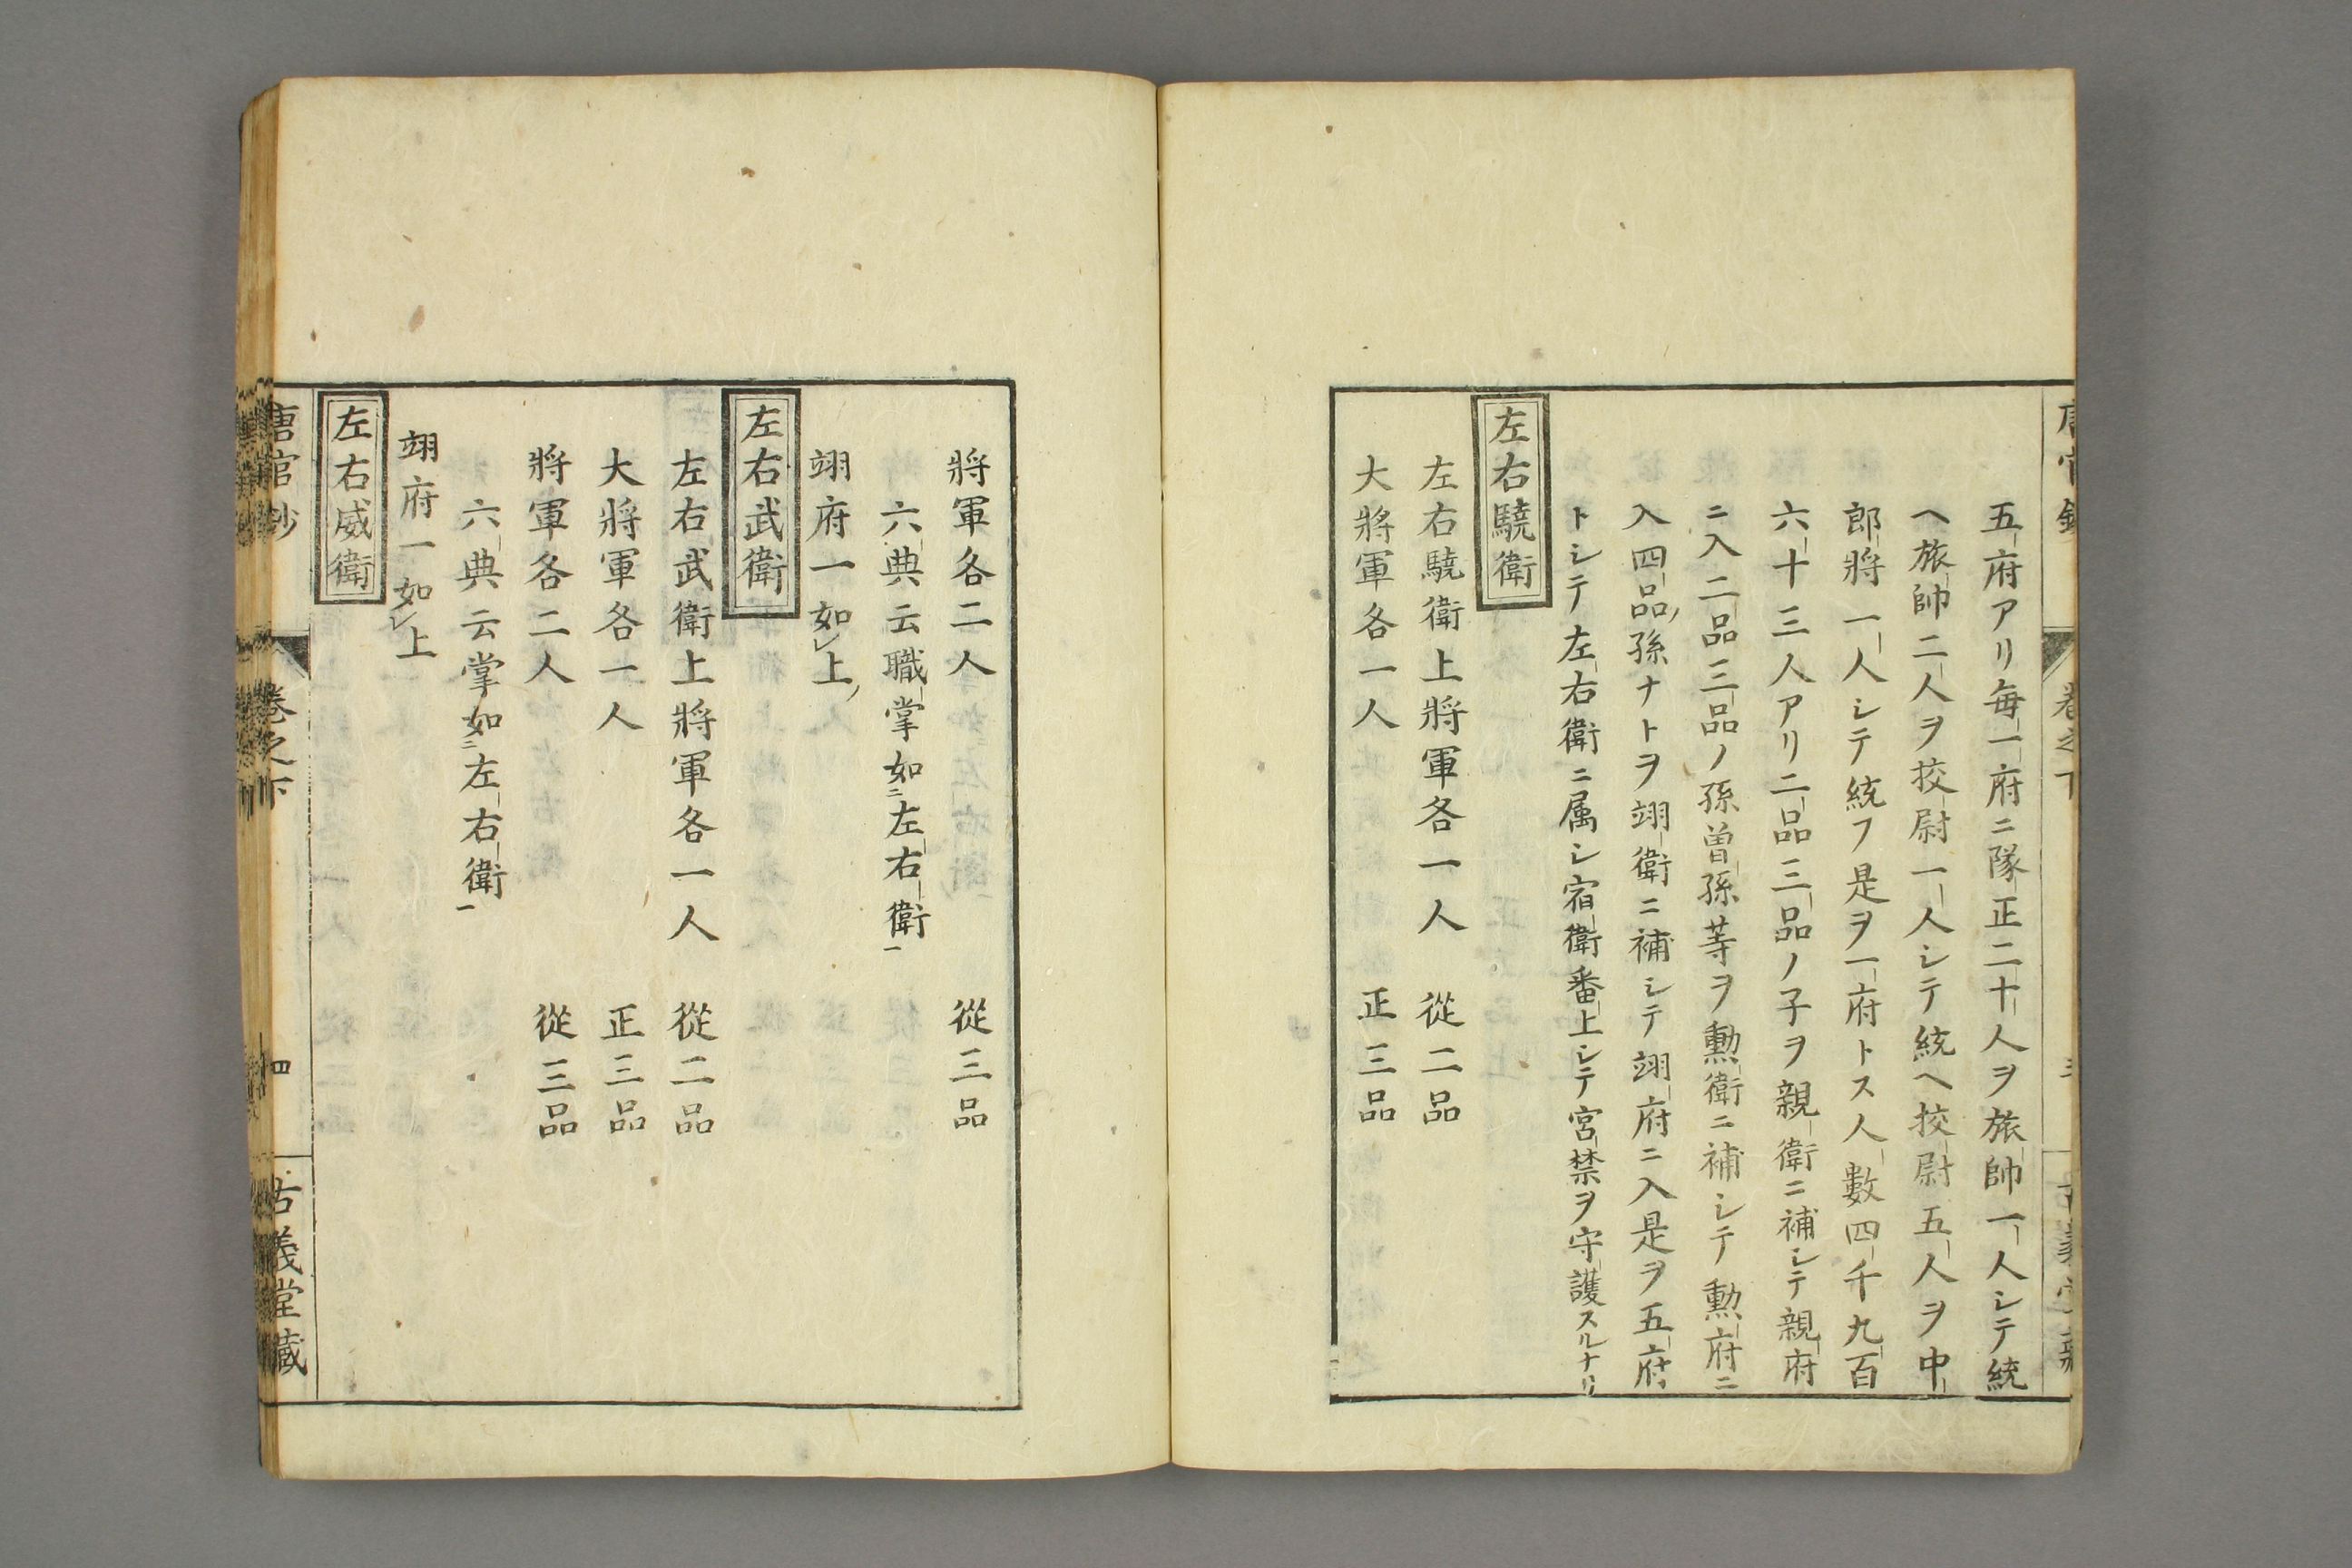 五府アリ毎一府ニ隊正二十人ヲ旅帥一人シテ統
ヘ旅帥二人ヲ挍尉一人シテ統ヘ挍尉五人ヲ中
郎將一人シテ統フ是ヲ一府トス人數四千九百
六十三人アリ二品三品ノ子ヲ親衛ニ補シテ親府
ニ入二品三品ノ孫曽孫等ヲ勲衛ニ補シテ勲府ニ
入四品孫ナトヲ翊衛ニ補シテ翊府ニ入是ヲ五府
トシテ左右衛ニ属シ宿衛番上シテ宮禁ヲ守護スルナリ
左右驍衛
左右驍衛上將軍各一人 從二品
大將軍各一人 正三品
將軍各二人 從三品
六典云職掌如二左右衛一
翊府一如レ上
左右武衛
左右武衛上將軍各一人 從二品
大將軍各一人 正三品
將軍各二人 從三品
六典云掌如二左右衛一
翊府一如レ上
左右威衛
唐官鈔 卷之下 四 古義堂藏